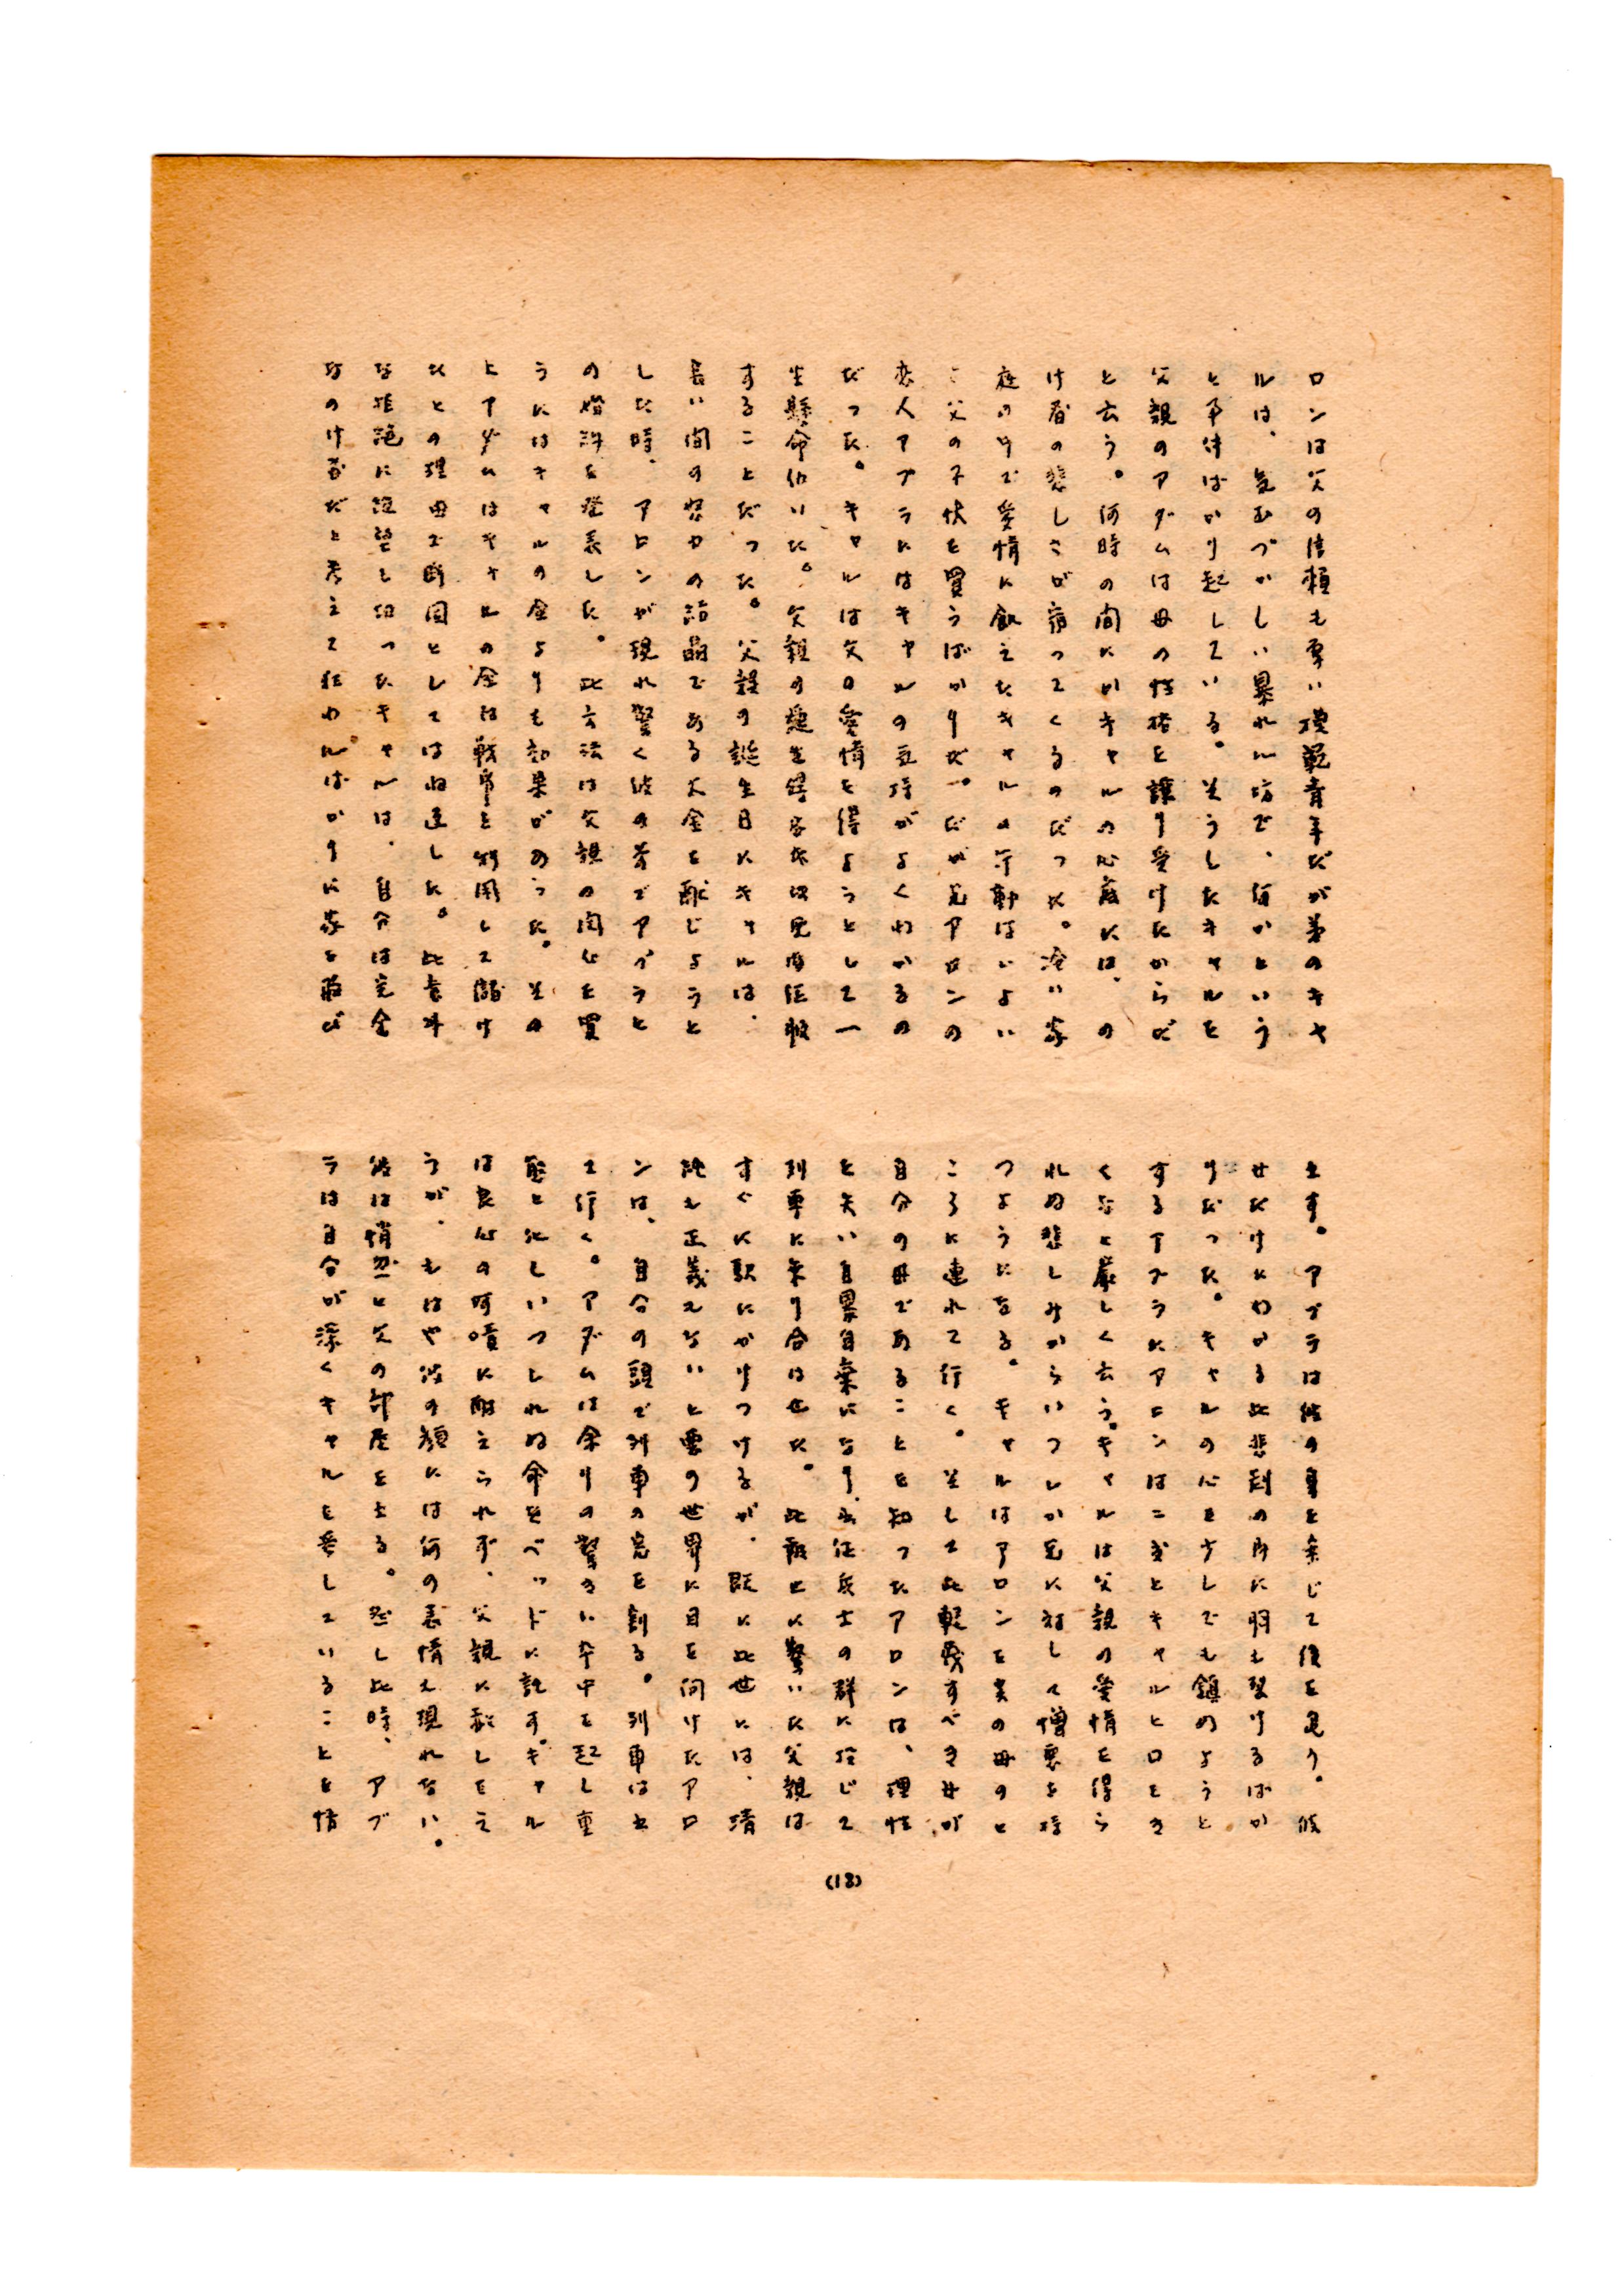 ロンは父の信頼も厚い模範青年だが弟のキャ
ルは、気むづかしい暴れん坊で、何かという
と事件ばかり起している。そうしたキャルを
父親のアダムは母の性格を譲り受けたからだ
と云う。何時の間にかキャルの心底には、の
け者の悲しさが宿ってくるのだった。冷い家
庭の中で愛情に飢えたキャルの行動はいよい
よ父の不伏を買うばかりだ。だが兄アロンの
恋人アブラにはキャルの気持がよくわかるの
だった。キャルは父の愛情を得ようとして一
生懸命働いた。父親の
することだった。父親の誕生日にキャルは、
長い間の努力の結晶である大金を献じようと
した時、アロンが現れ驚く彼の前でアブラと
の婚約を発表した。此方法は父親の関心を買
うにはキャルの金よりも効果があった。その
上アダムはキャルの金は戦争を利用して儲け
たとの理由で断固としてはね返した。此意外
な拒絶に絶望を知ったキャルは、自分は完全
なのけ者だと考えて狂わんばかりに家を飛び
出す。アブラは彼の身を案じて後を追う。彼
せだけにわかる此悲劇の為に胸も裂けるばか
りだった。キャルの心を少しでも鎮めようと
するアブラにアロンは二度とキャルと口をき
くなと厳しく云う。キャルは父親の愛情を得ら
れぬ悲しみからいつしか兄に対して憎悪を持
つようになる。キャルはアロンを実の母のと
ころに連れて行く。そして此軽蔑すべき女が
自分の母であることを知ったアロンは、理性
を失い自暴自棄になり、出征兵士の群に投じて
列車に乗り合はせた。此報せに驚いた父親は
すぐに駅にかけつけるが、既に此世には、清
純も正義もないと悪の世界に目を向けたアロ
ンは、自分の頭で列車の窓を割る。列車は出
て行く。アダムは余りの驚きに卒中を起し重
態と化しいつしれぬ命をベッドに託す。キャル
は良心の呵責に耐えられず、父親に赦しをこ
うが、もはや彼の顔には何の表情も現れない。
彼は悄然と父の部屋を出る。然し此時、アブ
ラは自分が深くキャルを愛していることを悟
(18)